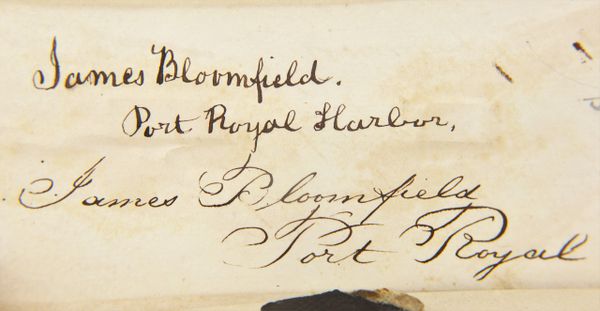 James Bloomfield.
Port Royal Harbor,
James Bloomfield
Port Royal